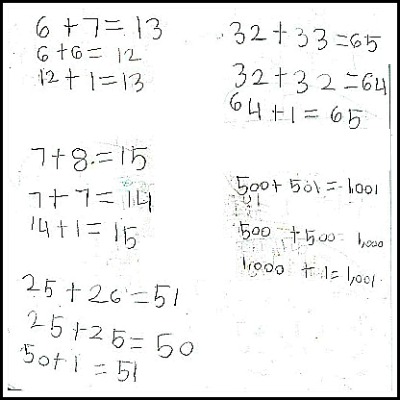 6 + 7 = 13
6 + 6 = 12
12 + 1 = 13
7 + 8 = 15
7 + 7 = 14
14 + 1 = 15
25 + 26 = 51
25 + 25 = 50
50 + 1 = 51
32 + 33 = 65
32 + 32 = 64
64 + 1 = 65
500 + 501 = 1,001
500 + 500 1,000
1,000 + 1 = 1,001